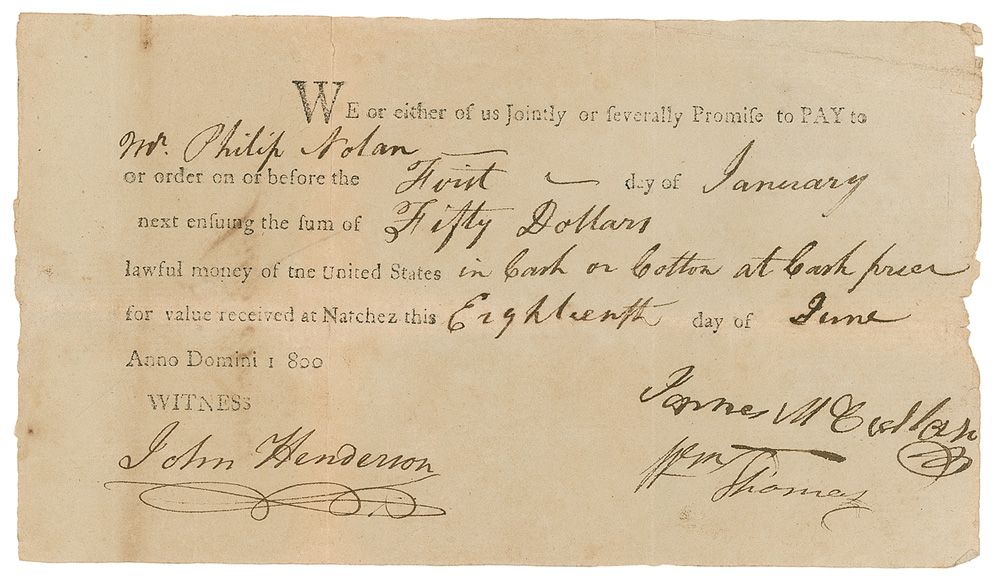 WE or either of us Jointly or ſeverally Promiſe to PAY to
Mr. Philip Nolan
or order on or before the First day of January
next enſuing the ſum of Fifty Dollars
lawful money of tne United States in Cash or Cotton at Cash price
for value received at Natchez this Eighteenth day of June
Anno Domini 1 800
WITNESS
James
John Henderson
Wm Thomas